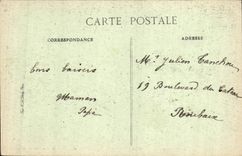 CARTE POSTALE
CORRESPONDANCE
ADRESSE
Mr Julien
bons baisers
19 Boulevard du
Maman
Papa
Roubaix